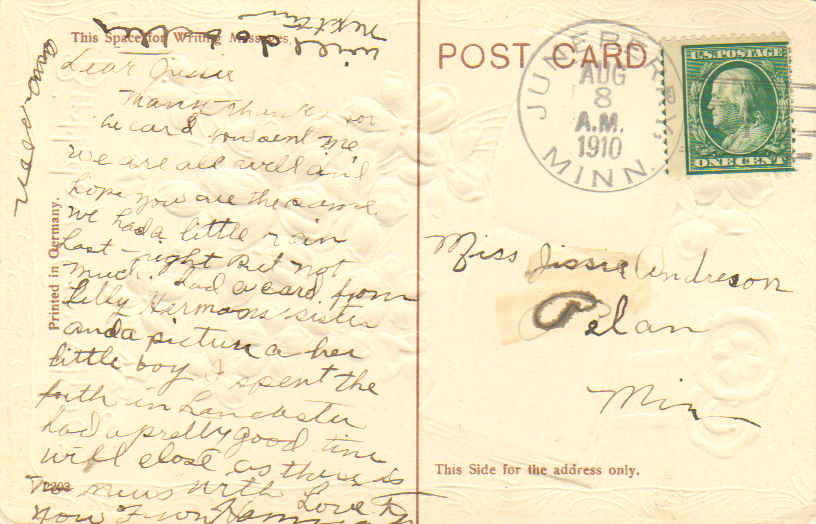 This Space for Writing Messages.
Dear Jissie
Many thanks for
he card you sent me
we are all well and
hope you are the same
we had a little rain
Last night But not
much. had a card from
Lilly Harmons sister
and a picture a her
little boy I spent the
forth in Lancaster
had a pretty good time
will close as there is
no news with Love to
you From
will do better
next time
Answer soon
Printed in Germany.
2203
POST CARD
JUNEBERRY
AUG
8
A.M.
1910
MINN.
U.S. POSTAGE
ONE CENT
Miss Jissie Andreson
Pelan
Minn
This Side for the address only.